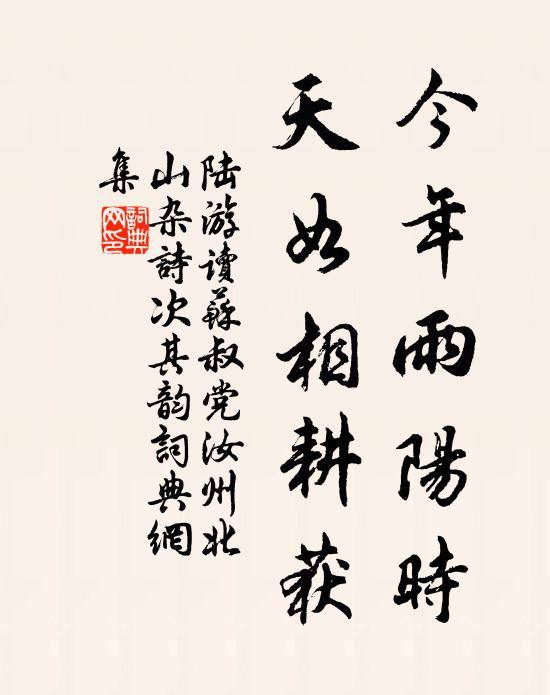 今年雨陽時
天如相耕获
陆游读蘇叔党汝州北
山杂詩次其韵詞典網
集
詞典
网印